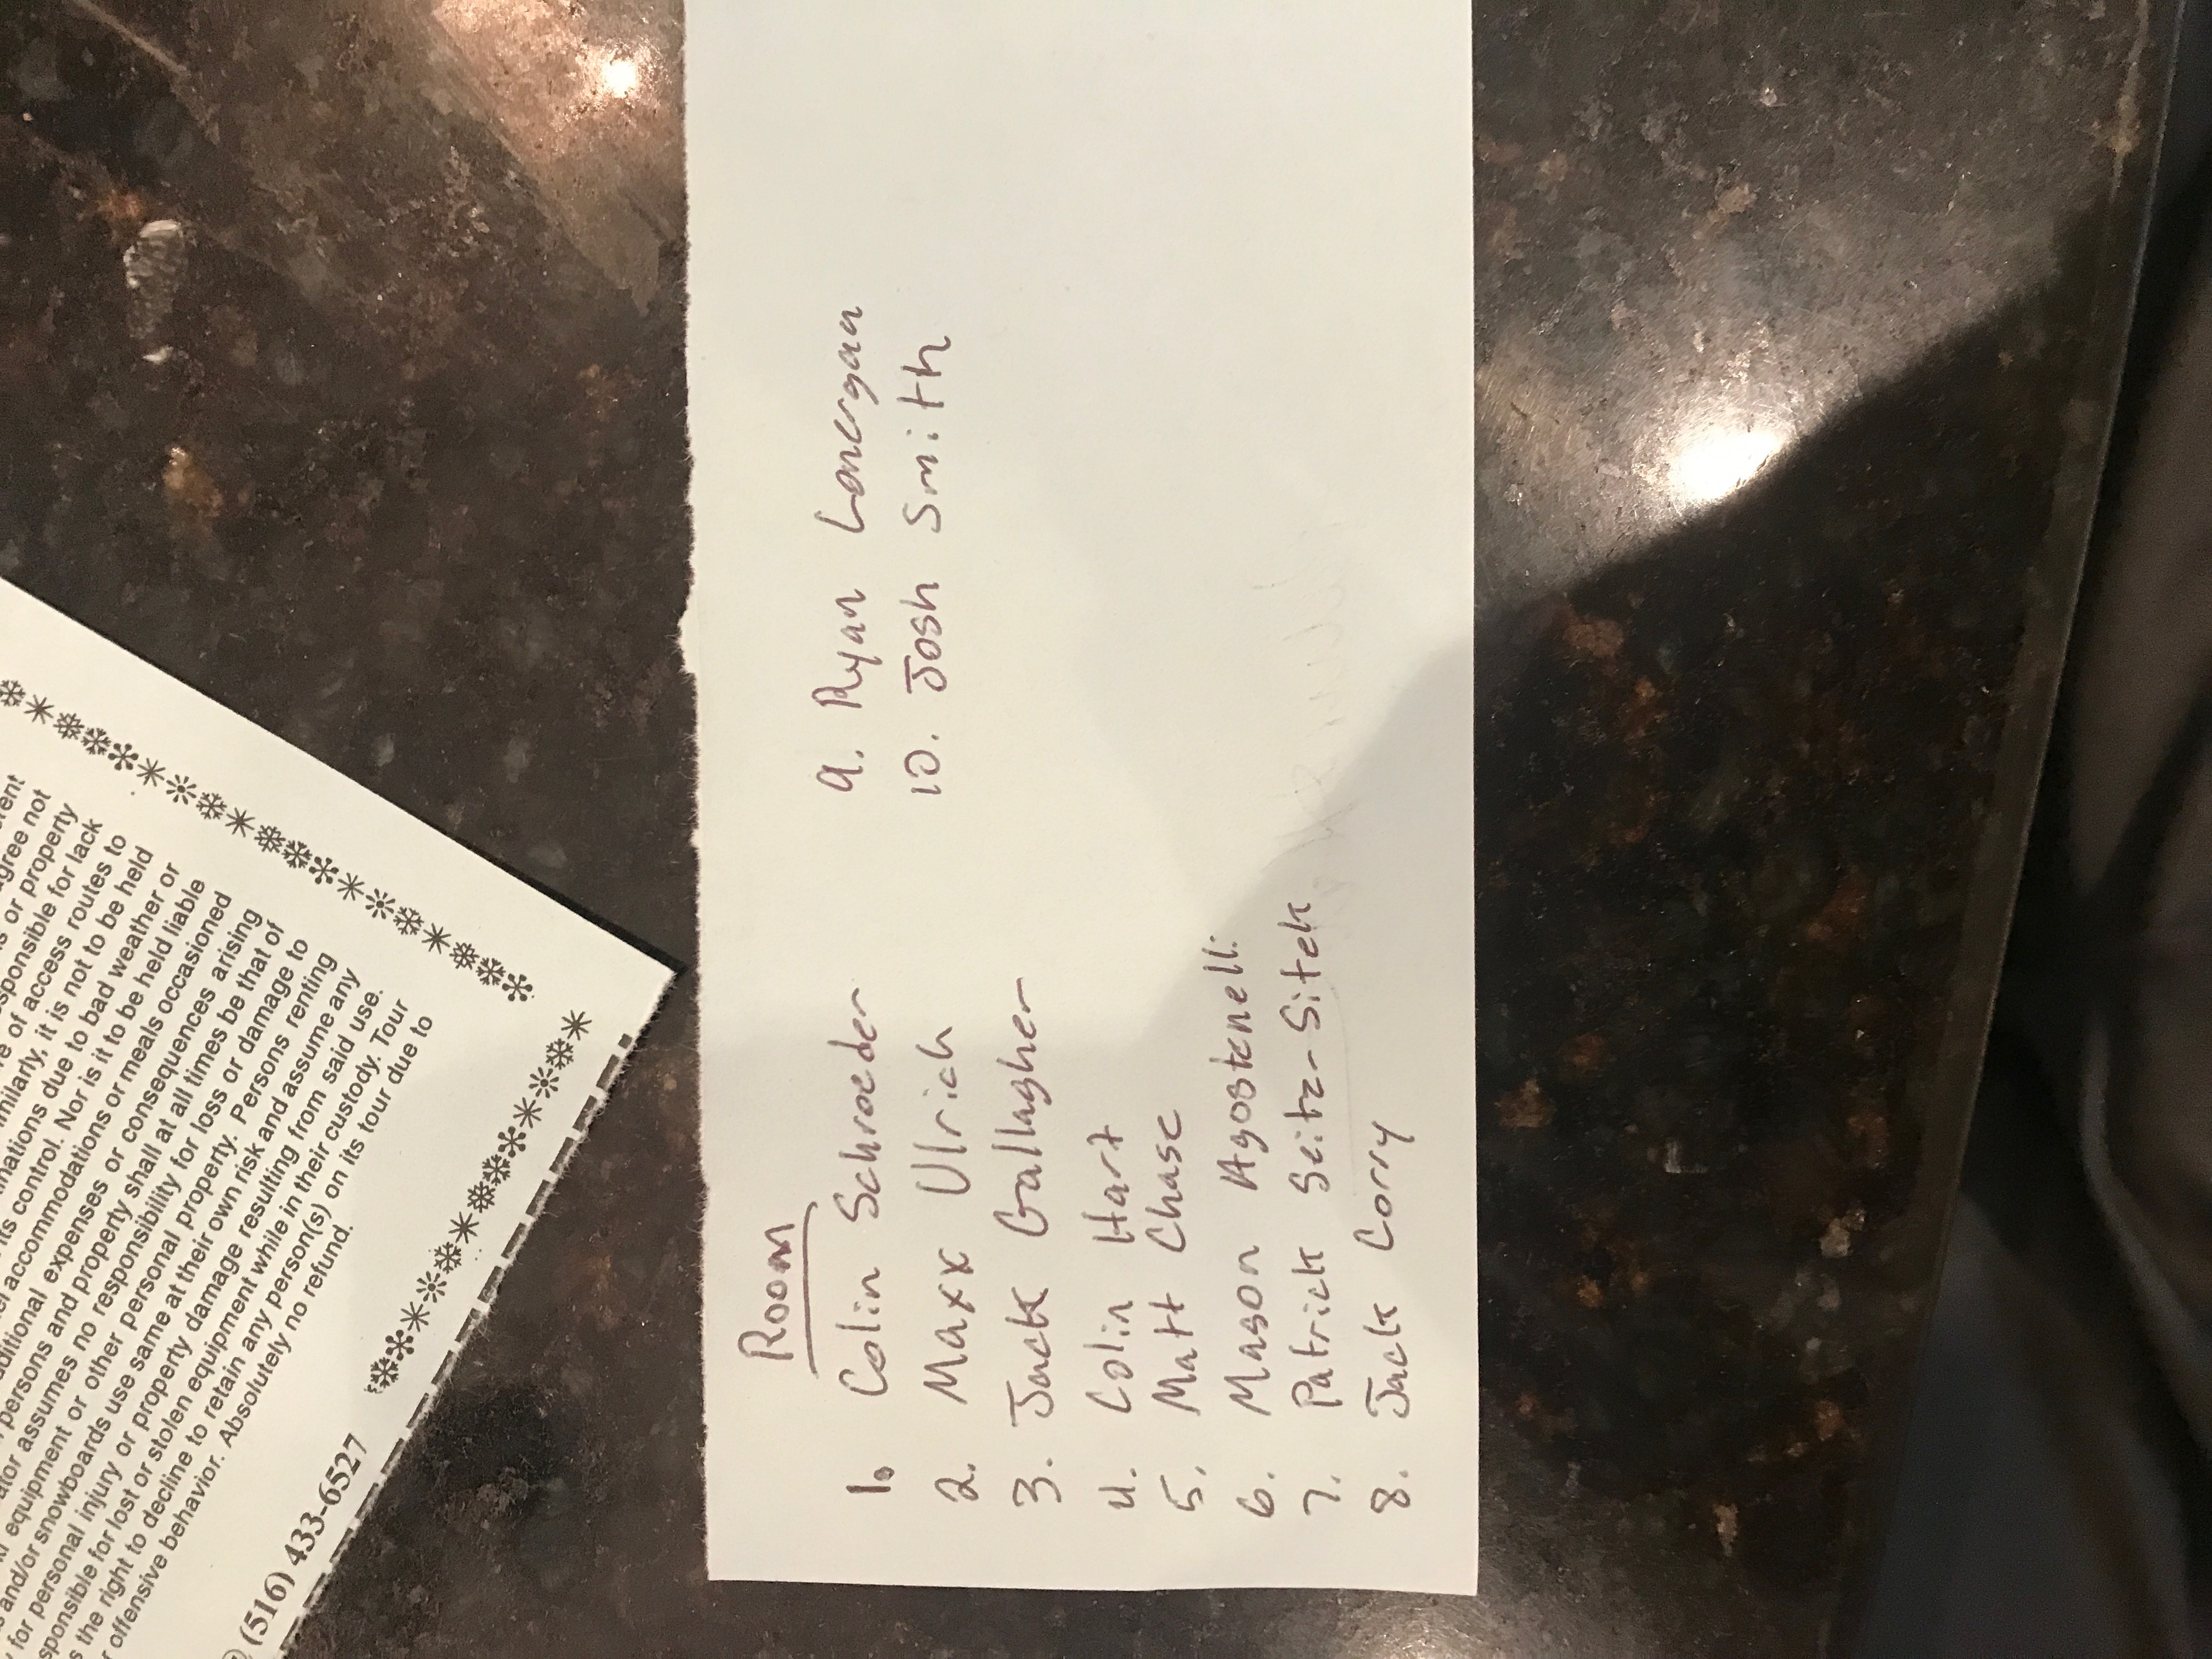 erent
agree not
s or property
sponsible for lack
re of access routes to
imilarly, it is not to be held
inations due to bad weather or
its control. Nor is it to be held liable
el accommodations or meals occasioned
dditional expenses or consequences arising
persons and property shall at all times be that of
ator assumes no responsibility for loss or damage to
equipment or other personal property. Persons renting
s and/or snowboards use same at their own risk and assume any
y for personal injury or property damage resulting from said use.
sponsible for lost or stolen equipment while in their custody. Tour
s the right to decline to retain any person(s) on its tour due to
r offensive behavior. Absolutely no refund.
(516) 433-6527
Room
1. Colin Schroeder
2. Maxx Ulrich
3. Jack Gallagher
4. Colin Hart
5. Matt Chase
6. Mason Agostenelli
7. Patrick Seitz-Sitek
8. Jack Corry
9. Ryan Lonergan
10. Josh Smith